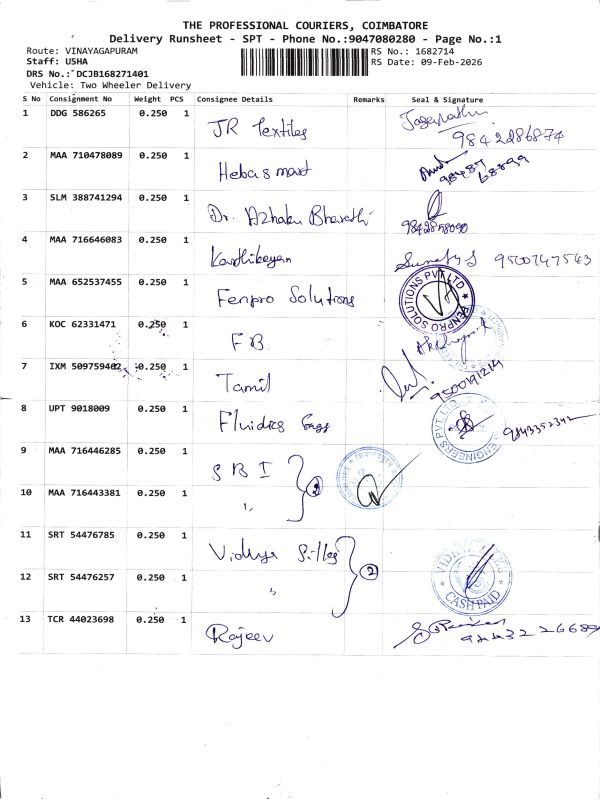 THE PROFESSIONAL COURIERS, COIMBATORE
Delivery Runsheet - SPT - Phone No.:9047080280 - Page No.:1
Route: VINAYAGAPURAM RS No.: 1682714
Staff: USHA RS Date: 09-Feb-2026
DRS No.: DCJB168271401
Vehicle: Two Wheeler Delivery
S No Consignment No Weight PCS Consignee Details Remarks Seal & Signature
1 DDG 586265 0.250 1 JR Textiles
9842286874
2 MAA 710478089 0.250 1 Hebas mart
3 SLM 388741294 0.250 1 Dr. Azhaku Bharathi
4 MAA 716646083 0.250 1 Karthikeyan 9500747543
5 MAA 652537455 0.250 1 Fenpro Solutions FENPRO SOLUTIONS PVT LTD
6 KOC 62331471 0.250 1 FB
7 IXM 509759402 0.250 1 Tamil 9500191214
8 UPT 9018009 0.250 1 Fluidres Engg ENGINEERS PVT. LTD. 9843352342
9 MAA 716446285 0.250 1 SBI 2
10 MAA 716443381 0.250 1 "
11 SRT 54476785 0.250 1 Vidhya Silks 2 CASH PAID
12 SRT 54476257 0.250 1 "
13 TCR 44023698 0.250 1 Rajeev